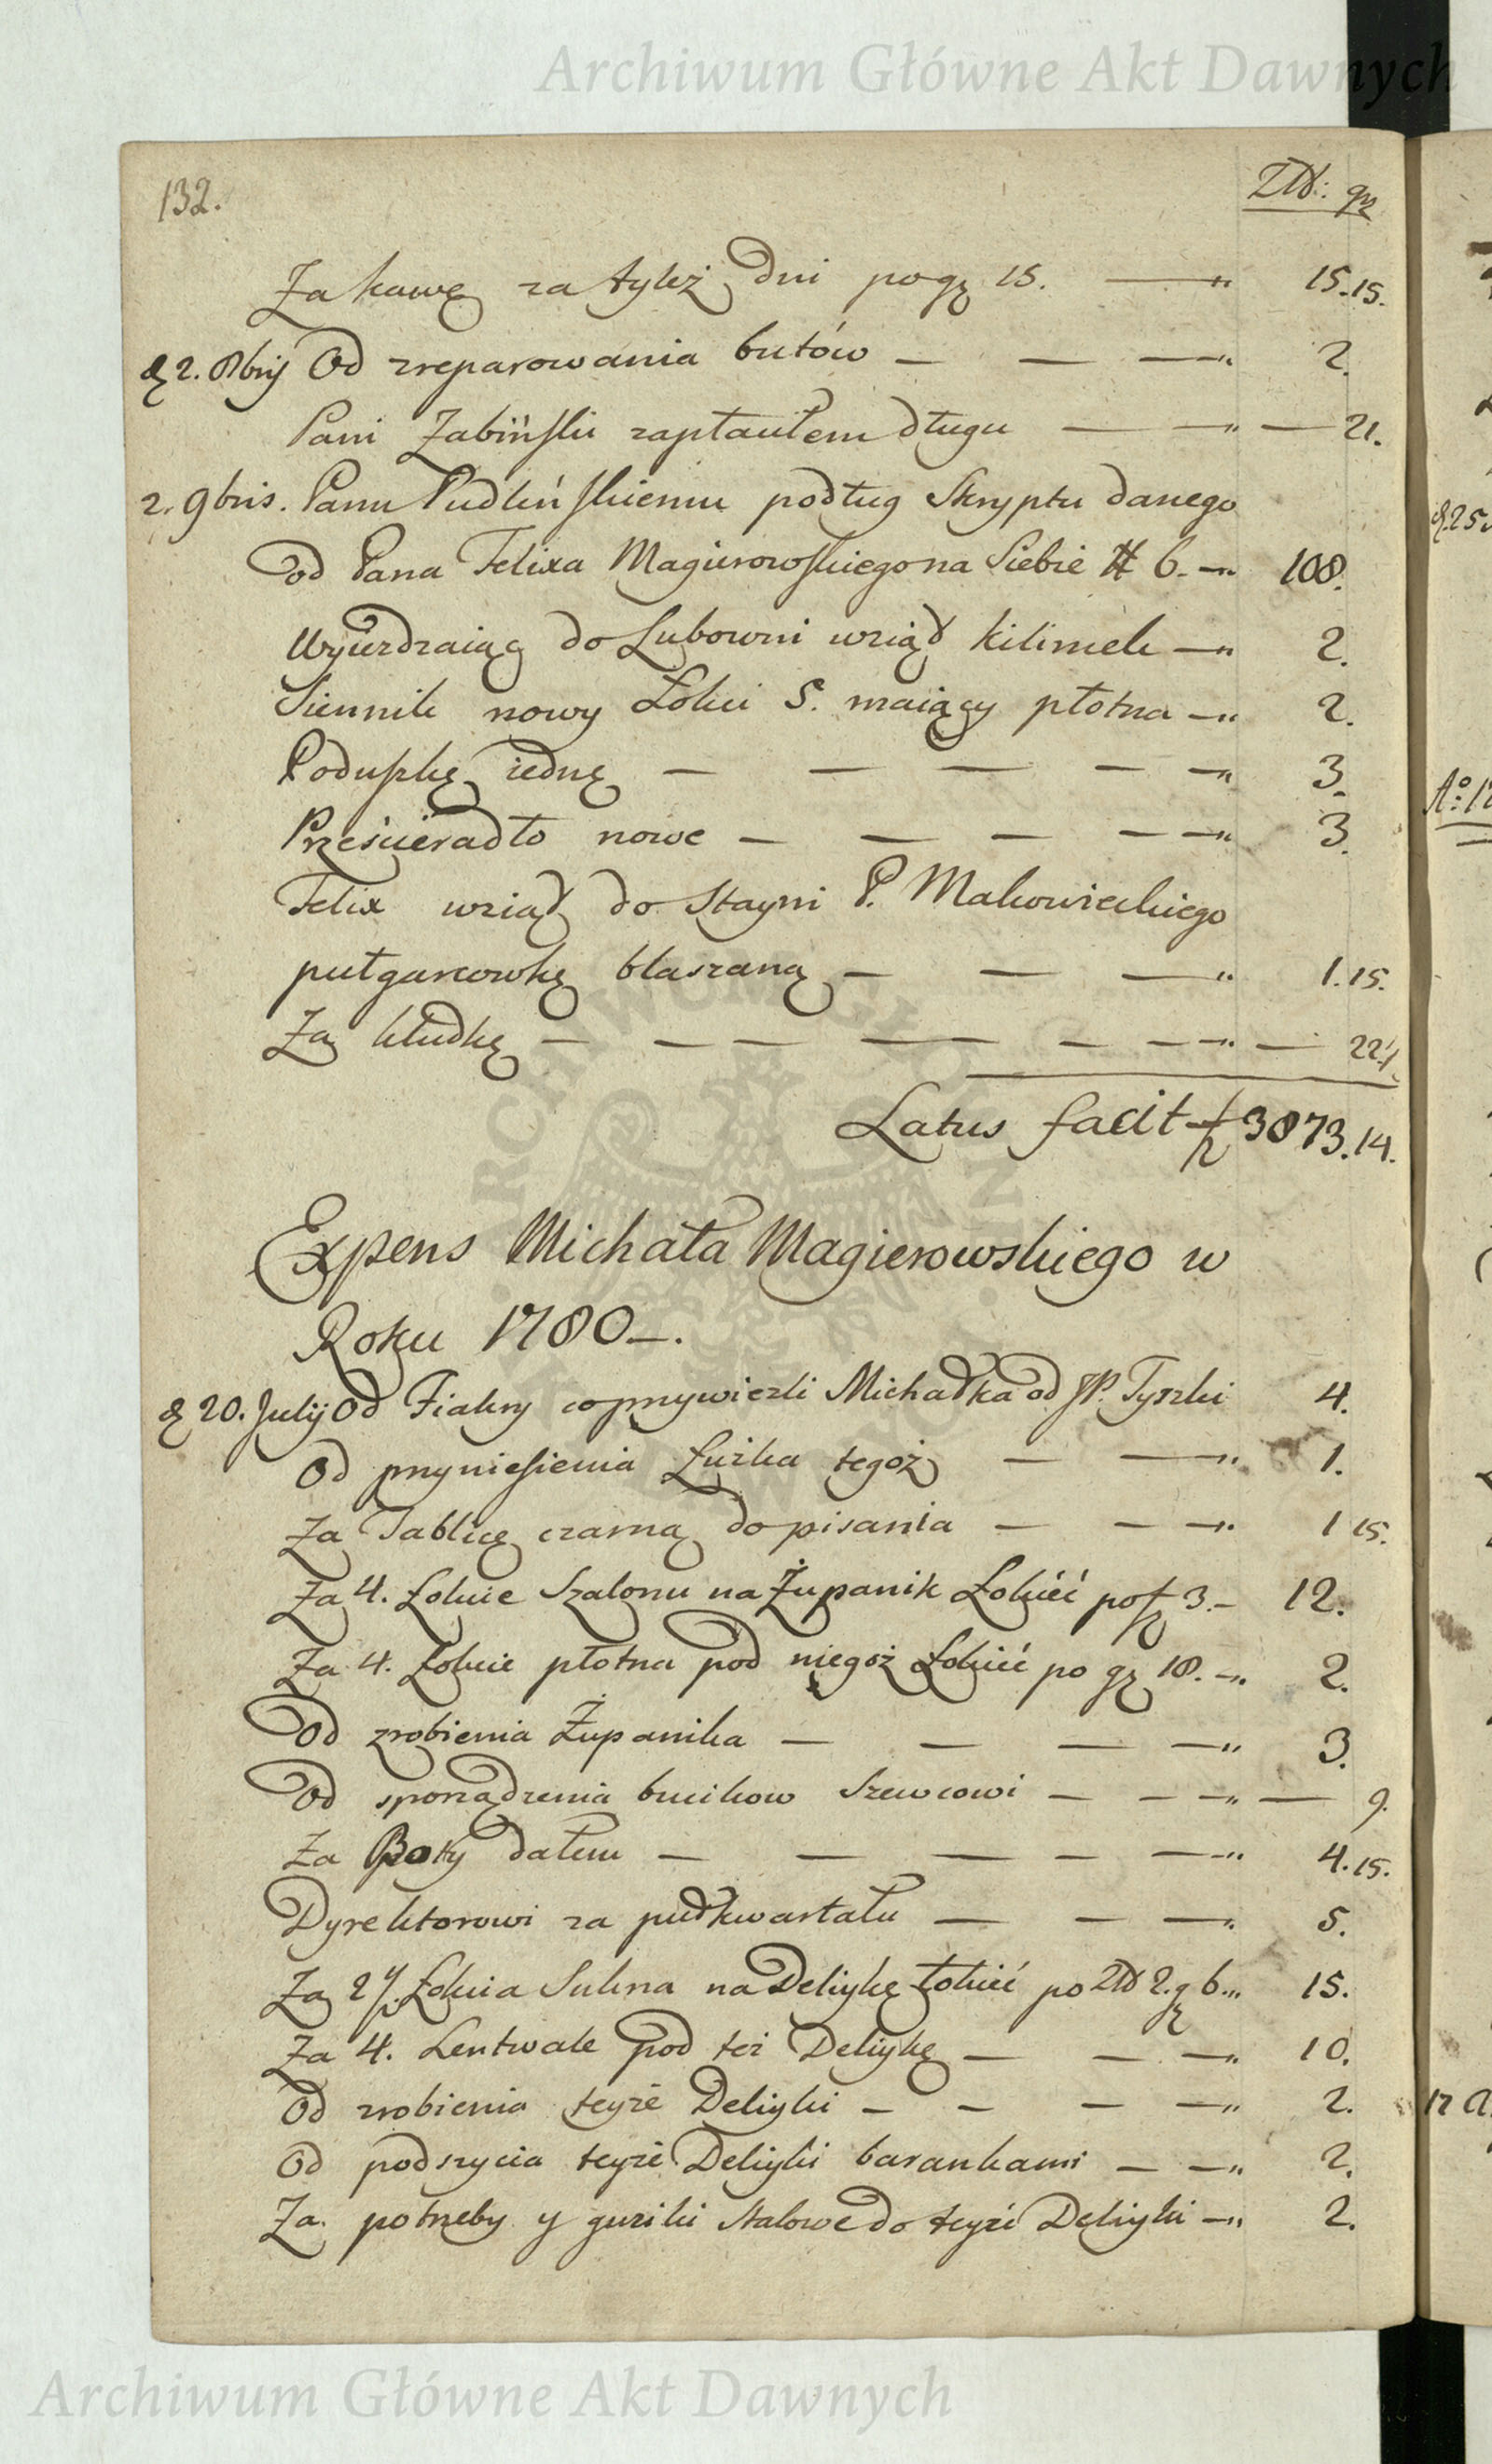 Archiwum Główne Akt Dawnych
132.
Złt: gr
Za kawę za tyleż dni po gr 15. — 15. 15.
d 2. 8bris Od zreparowania butów — 2.
Pani Zabińſki zapłaciłem długu — 21.
2. 9bris. Panu Pudlińſkiemu podług Skryptu danego
od Pana Felixa Magierowſkiego na Siebie # 6. — 108.
Wyjeżdzaiąc do Lubowni wziął kilimek — 2.
Siennik nowy Łokci 5. maiący płotna — 2.
Poduſzkę iednę — 3.
Prześcieradło nowe — 3.
Felix wziął do Stayni P. Makowieckiego
pułgarcowkę blaszaną — 1. 15.
Za kłudkę — 22½
Latus facit f 3873. 14.
Expens Michała Magierowskiego w
Roku 1780 —.
d 20. Julij Od Fiakry co przywiezli Michałka od JP. Tyszki 4.
Od przynieſienia Łużka tegoż — 1.
Za Tablicę czarną do pisania — 1 15.
Za 4. Łokcie Szalonu na Żupanik Łokieć po f 3. — 12.
Za 4. Łokcie płotna pod niegoż Łokieć po gr 18. — 2.
Od zrobienia Żupanika — 3.
Od sporządzenia bucikow Szewcowi — 9.
Za Boty dałem — 4. 15.
Dyrektorowi za pułkwartału — 5.
Za 2½ Łokcia Sukna na Deliykę łokieć po Złt 2. g 6. 15.
Za 4. Lentwale pod też Deliykę — 10.
Od zrobienia teyże Deliyki — 2.
Od podszycia teyże Deliyki barankami — 2.
Za potrzeby y guziki Stalowe do teyże Deliyki — 2.
Archiwum Główne Akt Dawnych